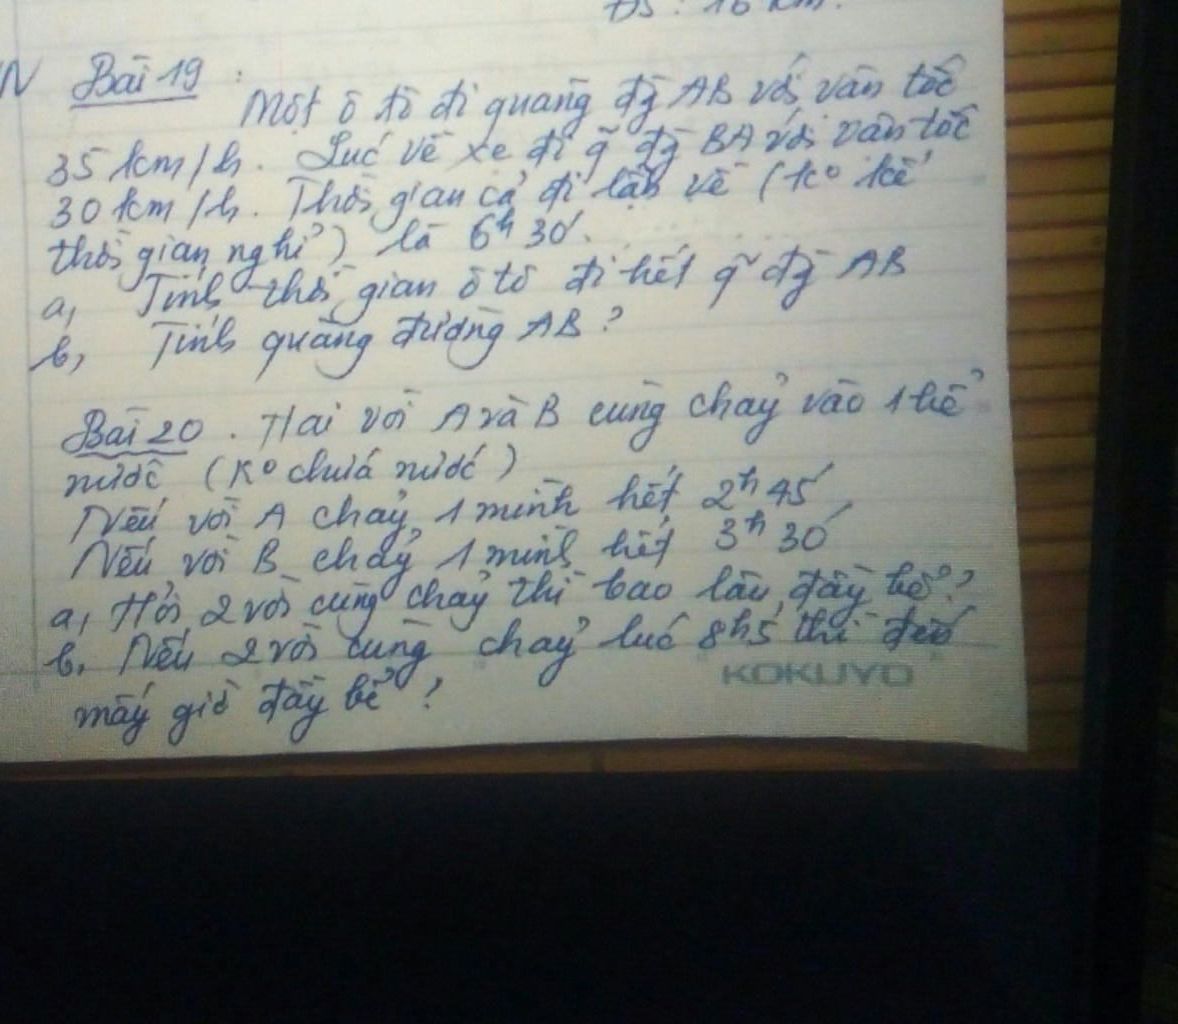 ĐS : 16 km.
N Bài 19 :
Một ô tô đi quãng đg AB với vận tốc
35 km/h. Lúc về xe đi q̃ đg BA với vận tốc
30 km/h. Thời gian cả đi lẫn về (ko kể
thời gian nghỉ) là 6h 30'.
a, Tính thời gian ô tô đi hết q̃ đg AB
b, Tính quãng đường AB ?
Bài 20 . Hai vòi A và B cùng chảy vào 1 bể
nước (Ko chứa nước)
Nếu vòi A chảy 1 mình hết 2h 45'
Nếu vòi B chảy 1 mình hết 3h 30'
a, Hỏi 2 vòi cùng chảy thì bao lâu đầy bể ?
b, Nếu 2 vòi cùng chảy lúc 8h5' thì đến
mấy giờ đầy bể ?
KOKUYO